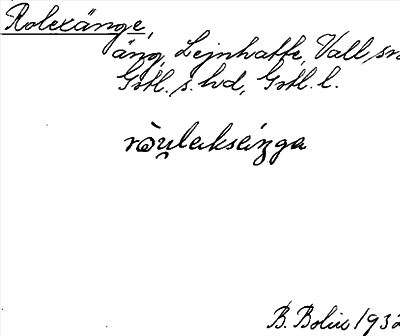 Rolexänge,
äng, Lejnhatte, Vall sn
Gotl. s. hd, Gotl. l.
ròu̯leksänga
B. Bolin 1932